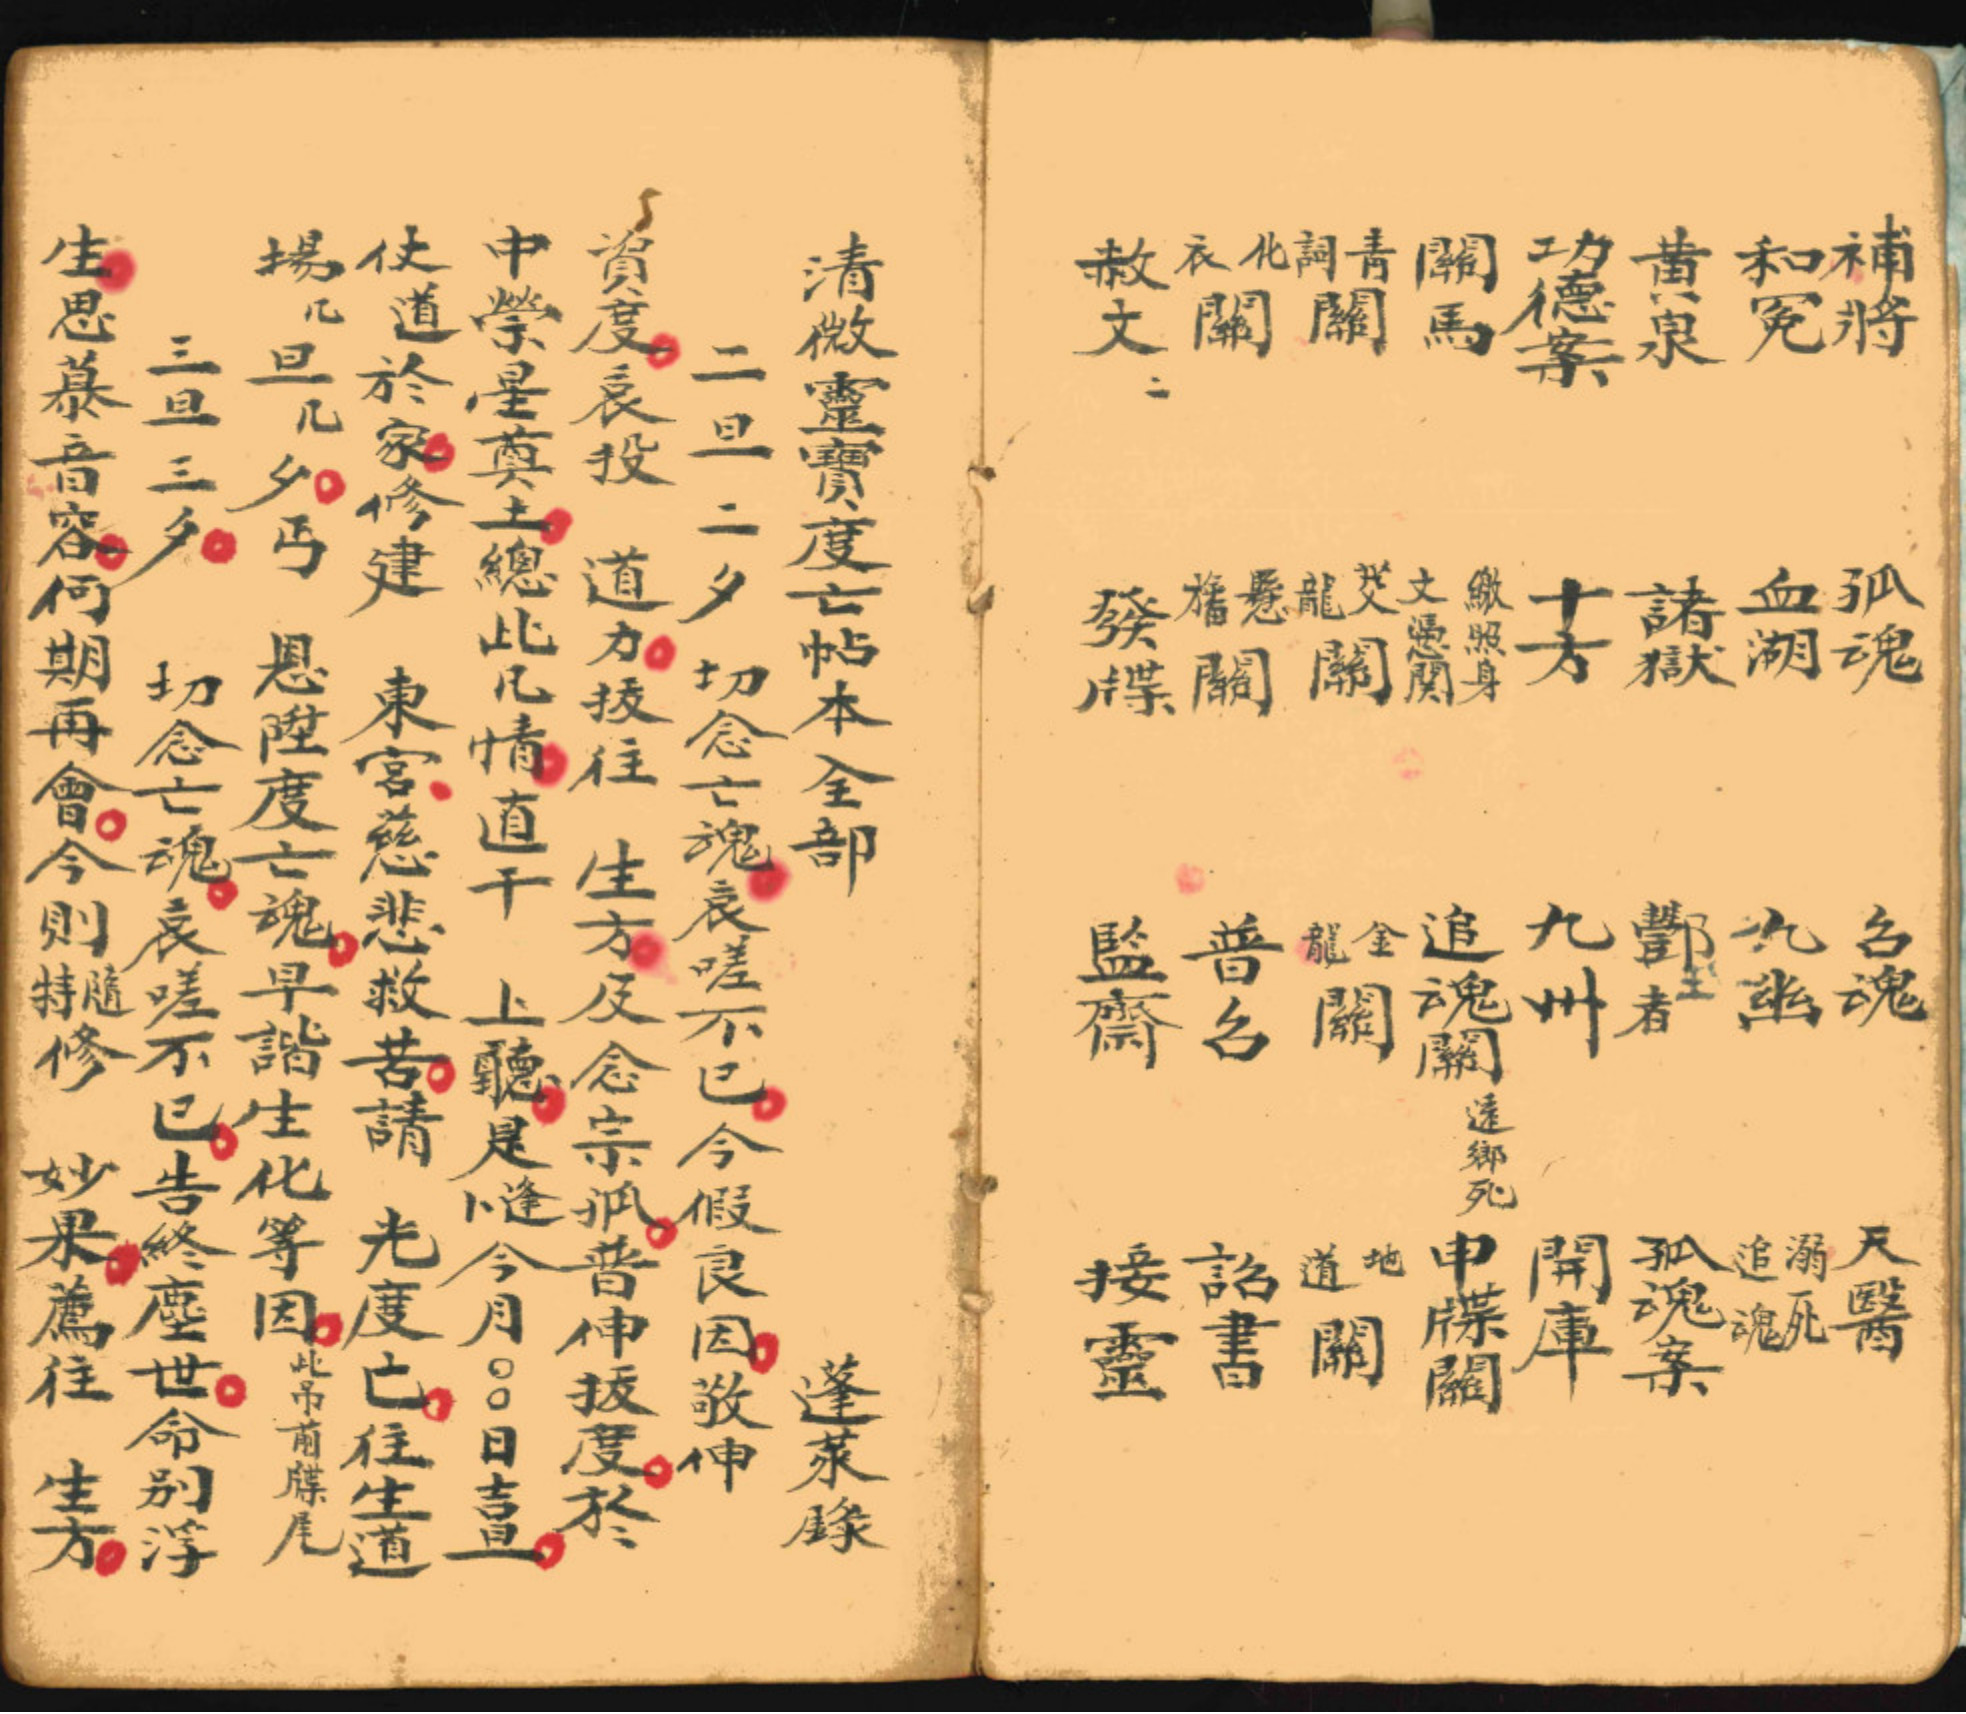 補將 孤魂 召魂 天醫
和冤 血湖 九幽 溺死追魂
黃泉 諸獄 酆都 者 孤魂案
功德案 十方 九州 開庫
關馬 繳照身文憑関 追魂關 遠鄉死 申牒關
青詞關 焚龍關 金龍關 地道關
化衣關 懸旛關 普召 詔書
赦文 二 發牒 監齋 接靈
清微靈寶度亡帖本全部 蓬萊錄
二旦二夕 切念亡魂哀嗟不已今假良因敬伸
資度哀投 道力拔往 生方及念宗孤普伸拔度於
中滎星奠土總此凡情直干 上聽是卜逢今月○○日吉亘
仗道於家修建 東宮慈悲救苦請 光度亡往生道
揚几旦几夕丐 恩陞度亡魂早諧生化等因此吊前牒尾
三旦三夕 切念亡魂哀嗟不已告終塵世命別浮
生思慕音容何期再會今則隨特修 妙果薦往 生方